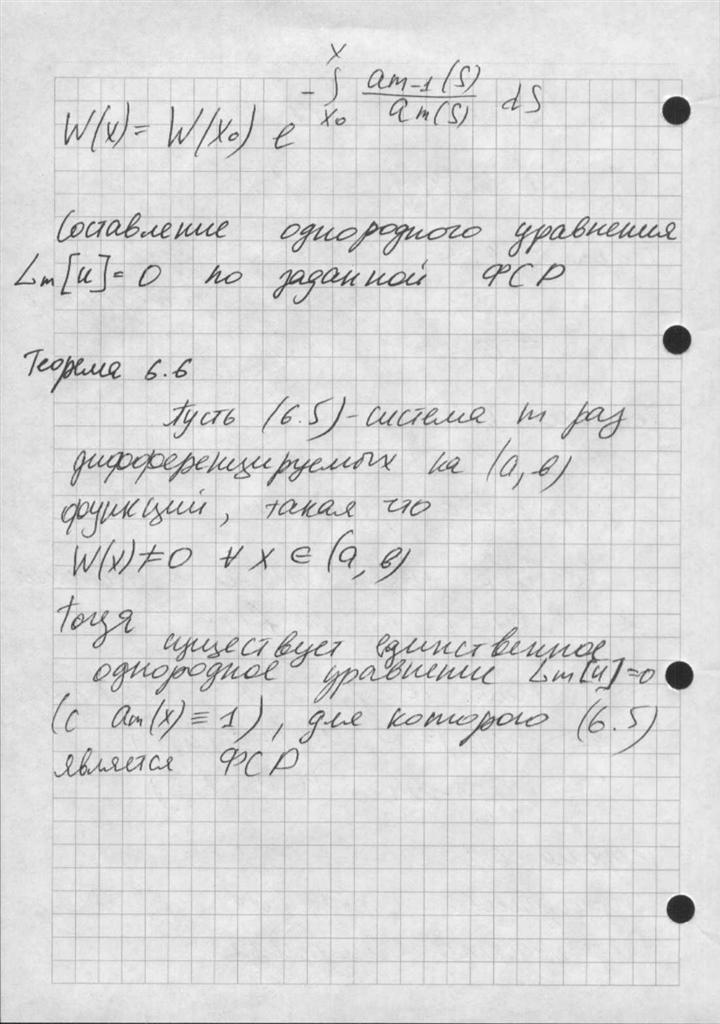 W(x) = W(x₀) e^{-∫_{x₀}^{x} \frac{a_{m-1}(s)}{a_m(s)} ds}
Составление однородного уравнения
L_m[u] = 0 по заданной ФСР
Теорема 6.6
Пусть (6.5) - система m раз
дифференцируемых на (a, b)
функций, такая что
W(x) ≠ 0 ∀ x ∈ (a, b)
Тогда
существует единственное
однородное уравнение L_m[u] = 0
(с a_m(x) ≡ 1), для которого (6.5)
является ФСР